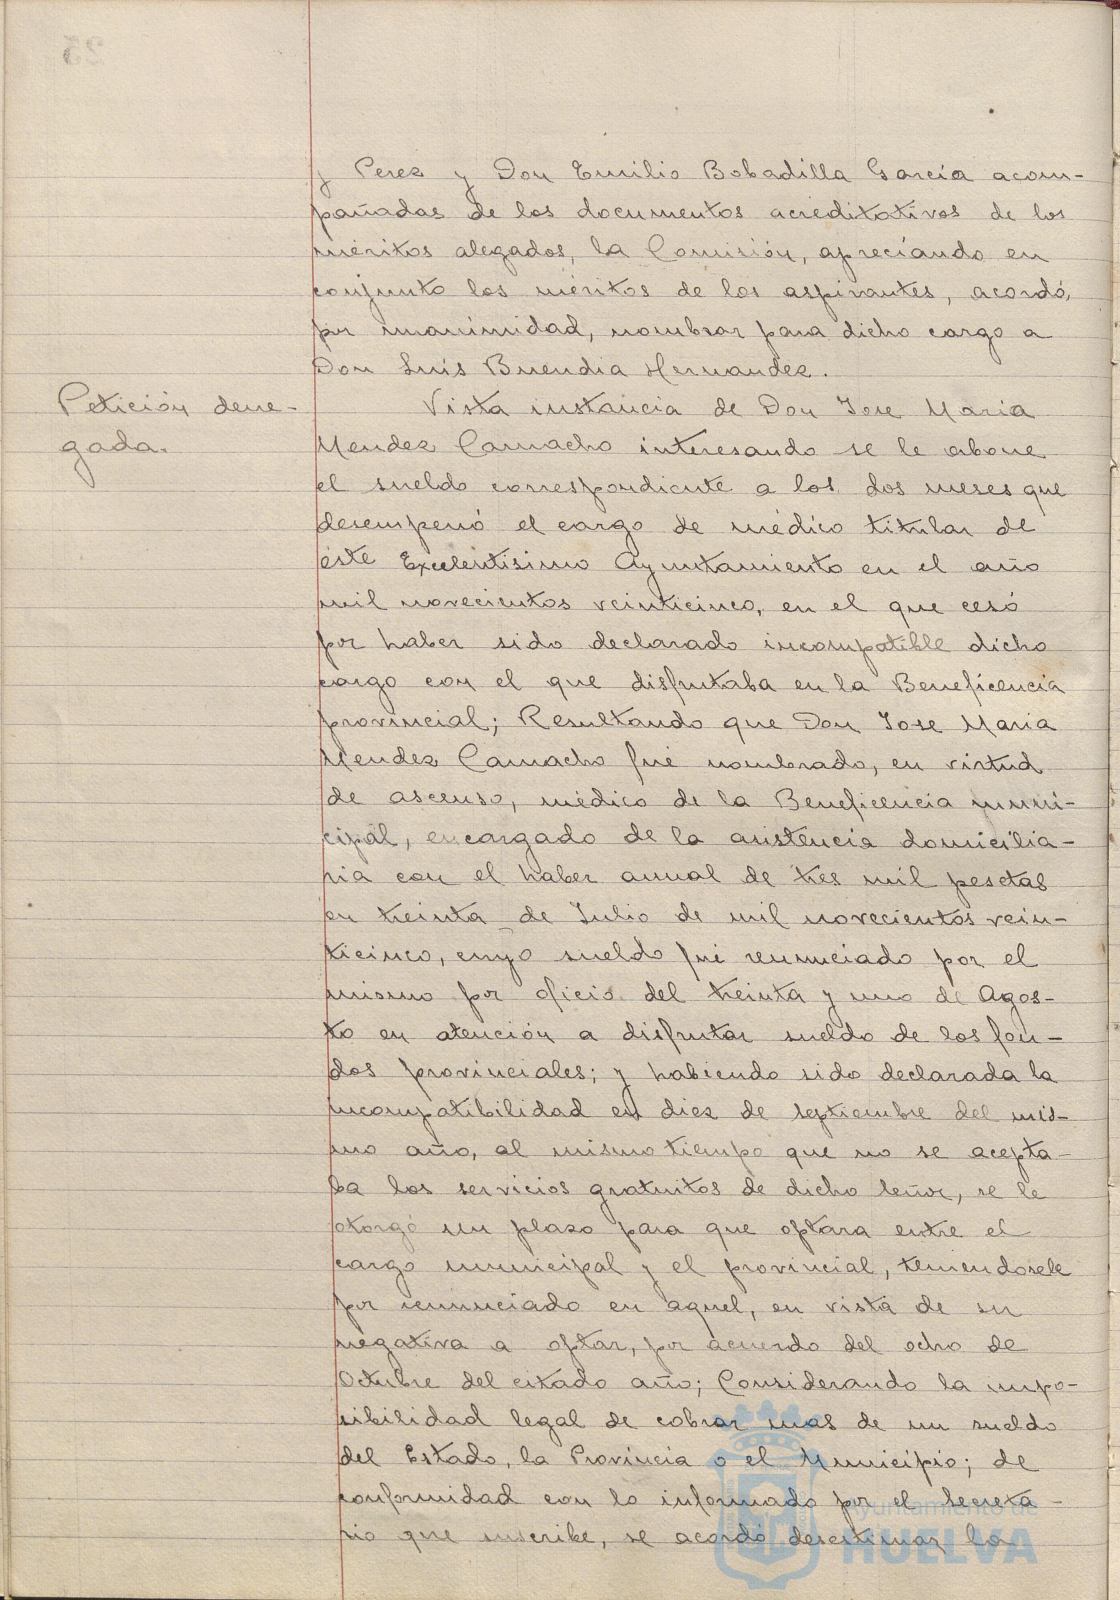 y Perez y Don Emilio Bobadilla García acom-
pañadas de los documentos acreditativos de los
méritos alegados, la Comisión, apreciando en
conjunto los méritos de los aspirantes, acordó,
por unanimidad, nombrar para dicho cargo a
Don Luis Buendia Hernandez.
Petición dene-
gada.
Vista instancia de Don Jose Maria
Mendez Camacho interesando se le abone
el sueldo correspondiente a los dos meses que
desempeñó el cargo de médico titular de
éste Excelentisimo Ayuntamiento en el año
mil novecientos veinticinco, en el que cesó
por haber sido declarado incompatible dicho
cargo con el que disfrutaba en la Beneficencia
provincial; Resultando que Don Jose Maria
Mendez Camacho fué nombrado, en virtud
de ascenso, médico de la Beneficencia muni-
cipal, encargado de la asistencia domicilia-
ria con el haber anual de tres mil pesetas
en treinta de Julio de mil novecientos vein-
ticinco, cuyo sueldo fué renunciado por el
mismo por oficio del treinta y uno de Agos-
to en atención a disfrutar sueldo de los fon-
dos provinciales; y habiendo sido declarada la
incompatibilidad en diez de septiembre del mis-
mo año, al mismo tiempo que no se acepta-
ba los servicios gratuitos de dicho señor, se le
otorgó un plazo para que optara entre el
cargo municipal y el provincial, teniendosele
por renunciado en aquel, en vista de su
negativa a optar, por acuerdo del ocho de
Octubre del citado año; Considerando la impo-
sibilidad legal de cobrar mas de un sueldo
del Estado, la Provincia o el Municipio; de
conformidad con lo informado por el Secreta-
rio que suscribe, se acordó desestimar la
Ayuntamiento de
HUELVA
25